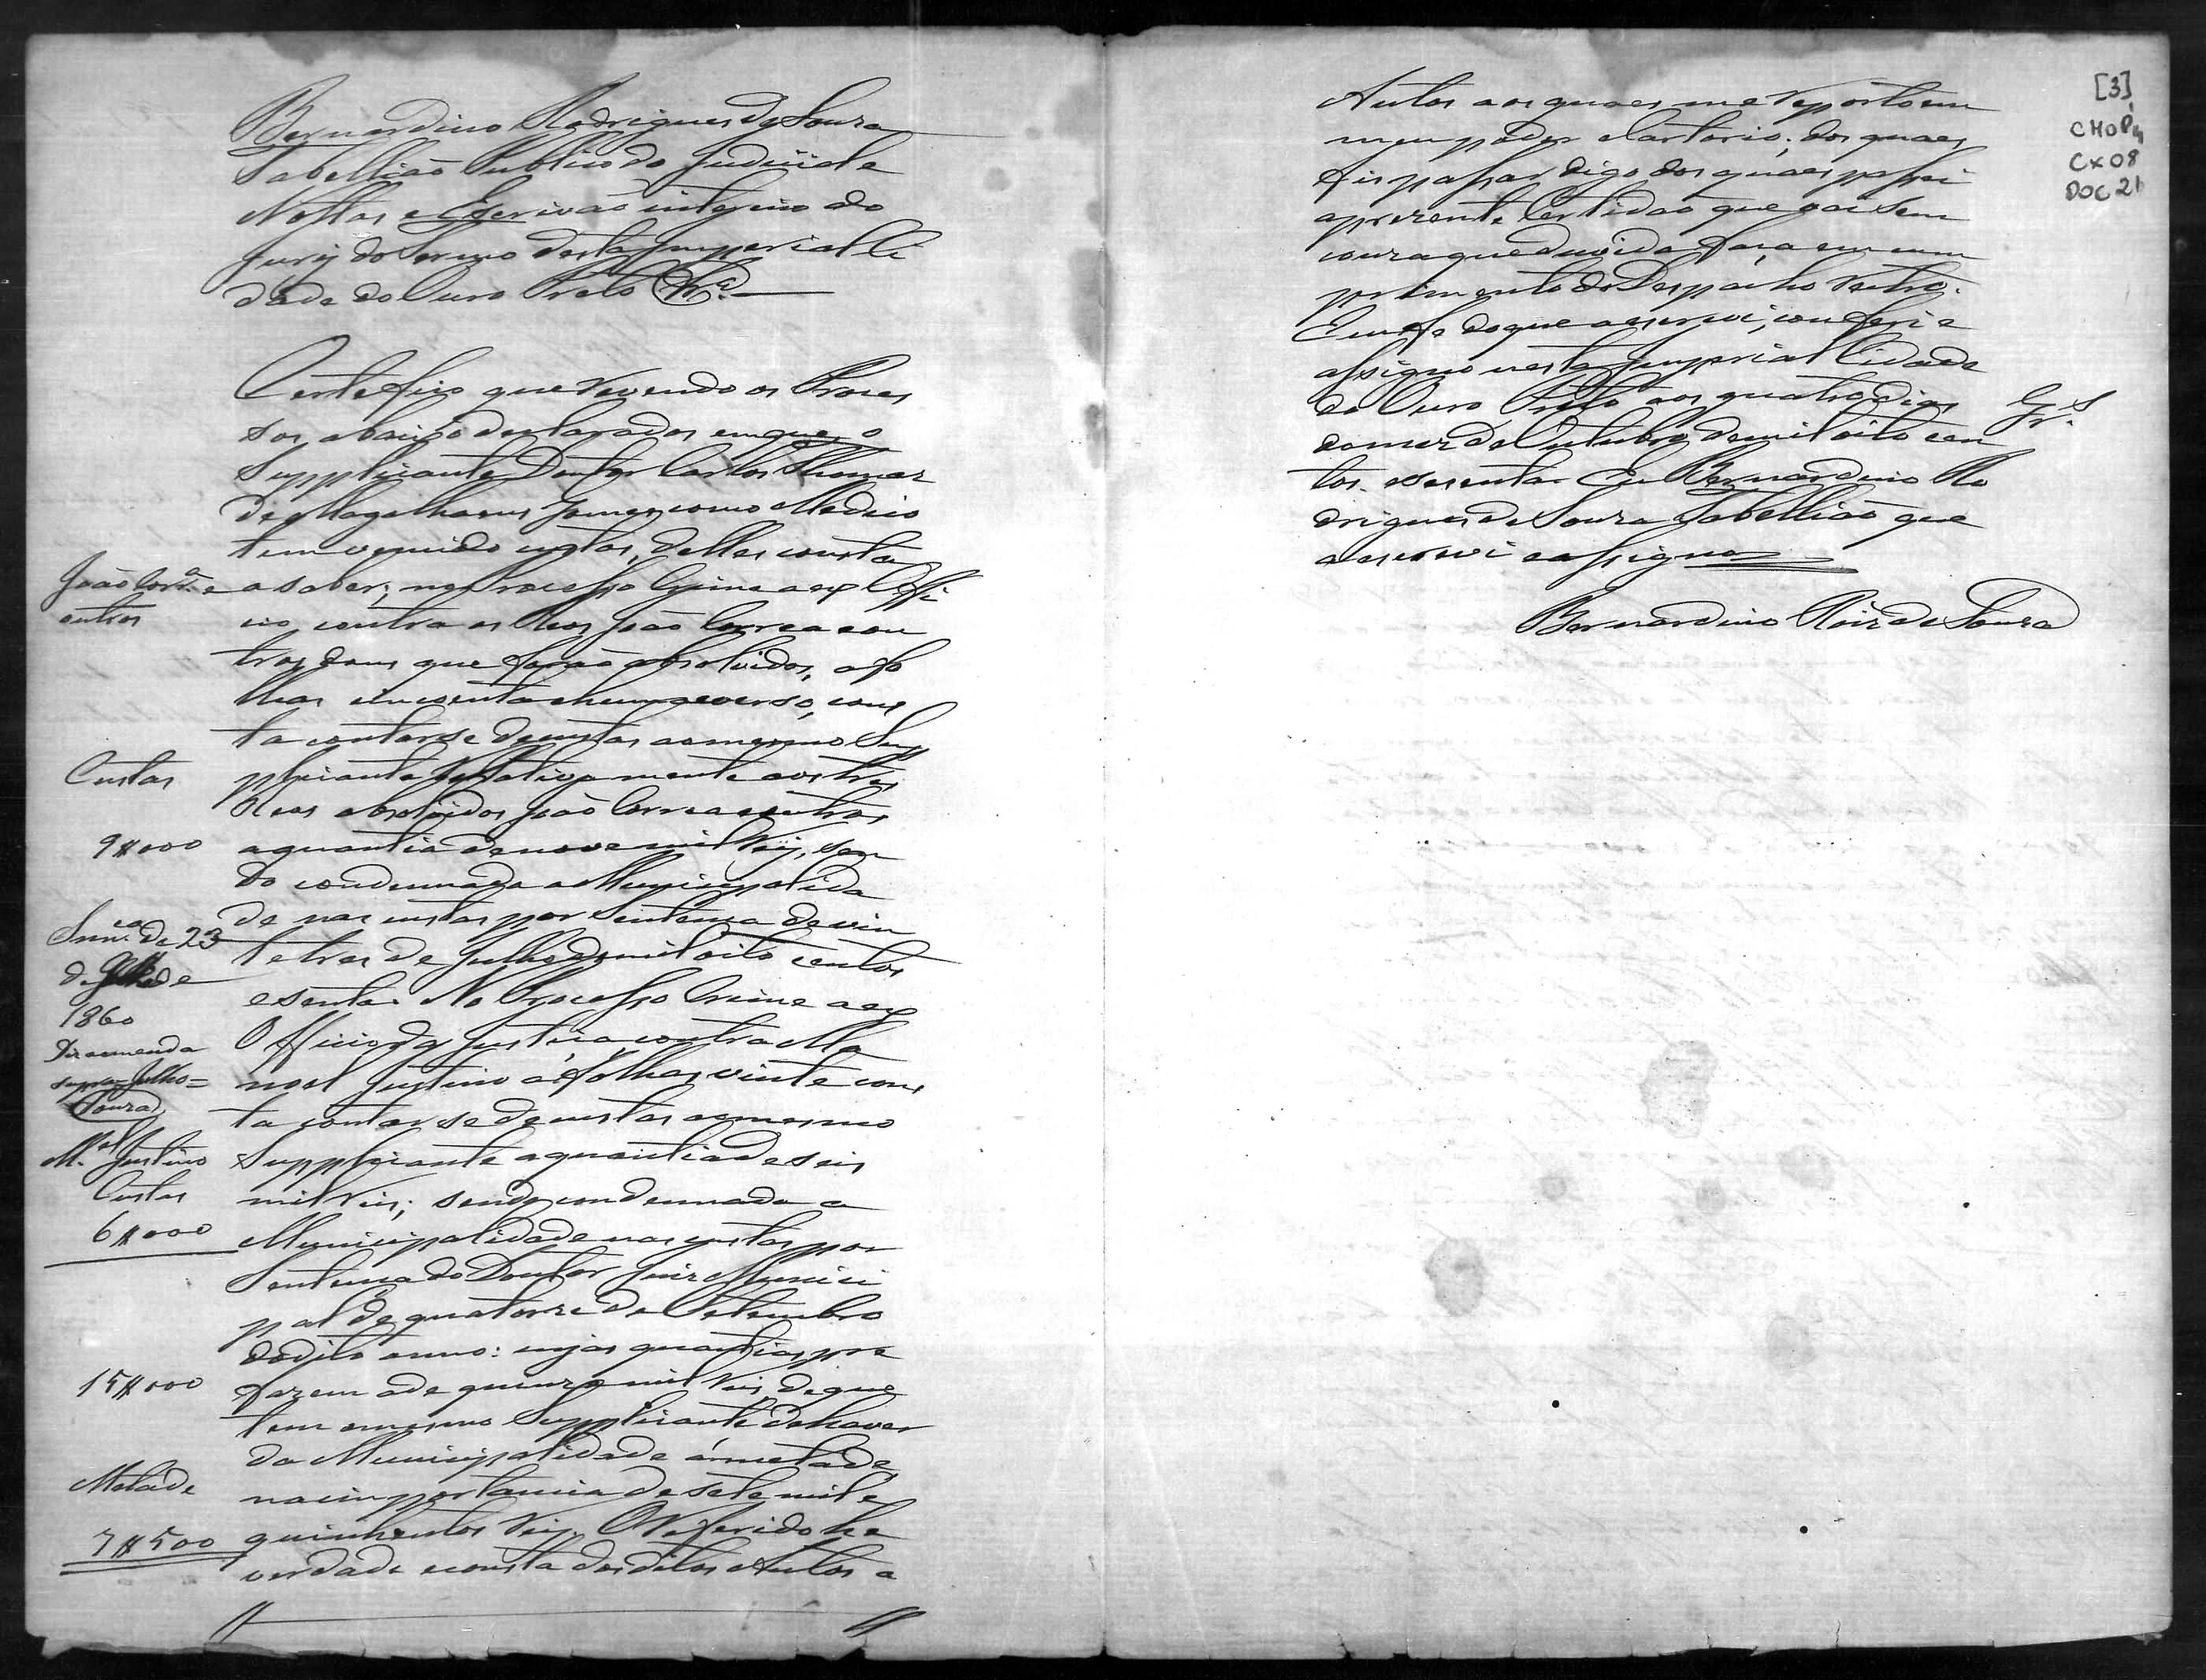 Bernardino Rodrigues de Souza
Tabellião Publico do Judicial e
Nottas e Escrivão interino do
Jury do Termo desta Imperial Ci
dade do Ouro Preto &ª.
Certefico que revendo os Proces
sos abaixo declarados em que o
Supplicante Doutor Carlos Thomaz
de Magalhaens Gomes como Medico
tem vencido custas, delles consta
João Corrª. e
outros
a saber; no Processo Crime a ex Offi
cio contra os Reos João Correa e ou
tros dous que forão absolvidos, a fo
lhas cincoenta e huma e verso, cons
ta contarse de custas ao mesmo Sup
Custas
plicante relativamente aos tres
Reos absolvidos João Correa e outros
9$000
a quantia de nove mil reis, sen
do condemnada a Municipalida
de nas custas por Sentença de vin
Sença. de 23
de de
1860
te tres de Julho de mil oito centos
e sesenta. No Processo Crime a ex
Diz a emenda
supra = Julho =
Souza
Officio da Justiça contra Ma
noel Justino á folhas vinte cons
ta contar se de custas ao mesmo
M.el Justino
Custas
6$000
Supplicante a quantia de seis
mil reis; sendo condemnada a
Municipalidade nas custas por
Sentença do Doutor Juiz Munici
pal de quatorze de Setembro
do dito anno: cujas quantias per
15$000
fazem a de quinze mil reis, de que
tem o mesmo Supplicante de haver
da Municipalidade á metade,
Metade
na importancia de sete mil e
7$500
quinhentos reis. O referido he
verdade e consta dos ditos Autos a
[3]
CMOP
CX08
DOC 21
Autos aos quaes me reporto em
meu poder e Cartorio; dos quaes
fis passar digo dos quaes passei
a prezente Certidão que vai sem
couza que duvida faça em cum
primento do Despacho retro.
Em fe do que a escrevi, conferi e
assigno nesta Imperial Cidade
do Ouro Preto aos quatro dias
do mez de Outubro de mil oito cen
tos e sesenta. Eu Bernardino Ro
drigues de Souza Tabellião que
a escrevi e assigno
Bernardino Roiz de Souza